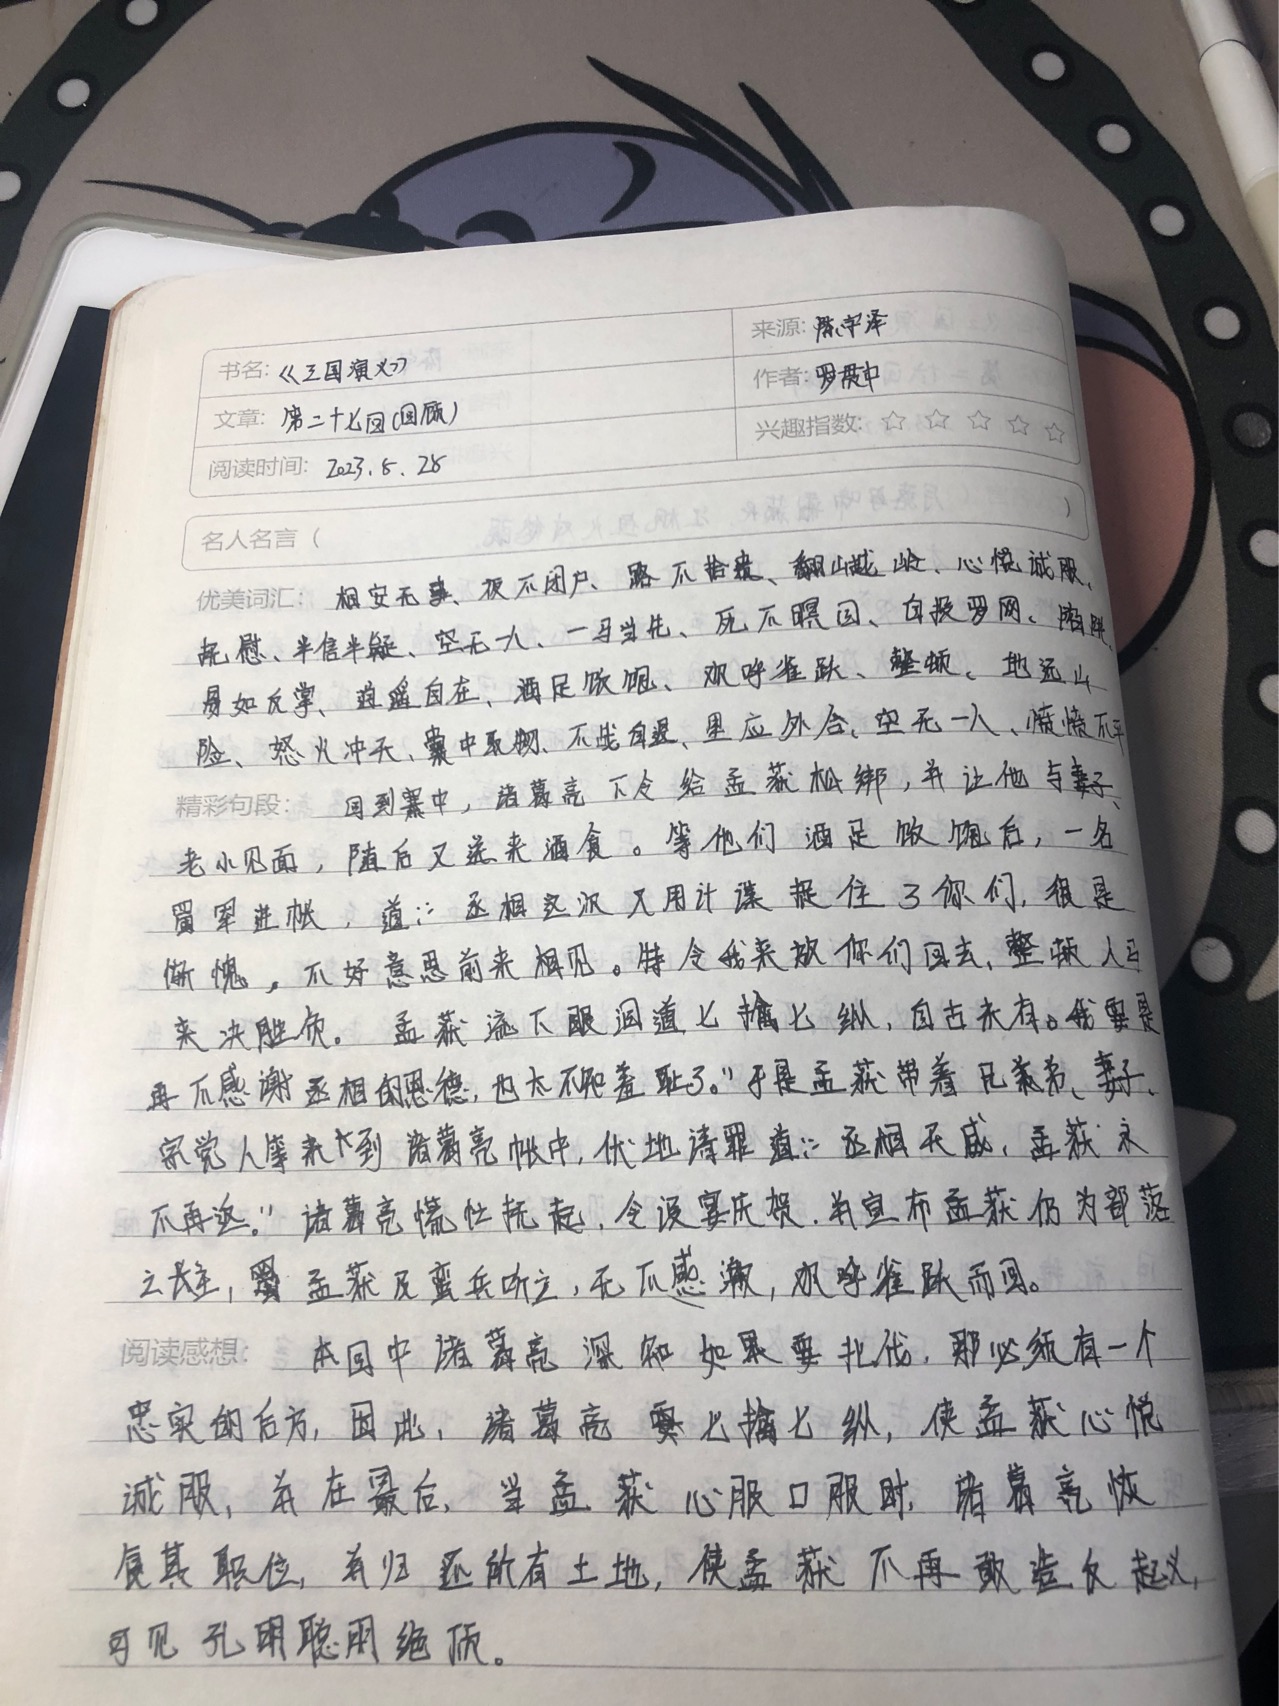 书名: 《三国演义》 来源: 陈宇泽
文章: 第二十七回(回顾) 作者: 罗贯中
阅读时间: 2023.5.28 兴趣指数: ☆ ☆ ☆ ☆ ☆
名人名言 ( )
优美词汇: 相安无事、夜不闭户、路不拾遗、翻山越岭、心悦诚服、
抚慰、半信半疑、空无一人、一马当先、死不瞑目、自投罗网、
易如反掌、逍遥自在、酒足饭饱、欢呼雀跃、整顿、地远山
险、怒火冲天、囊中取物、不战自退、里应外合、空无一人、愤愤不平
精彩句段: 回到寨中,诸葛亮下令给孟获松绑,并让他与妻子、
老小见面,随后又送来酒食。等他们酒足饭饱后,一名
蜀军进帐,道:“丞相这次又用计谋捉住了你们,很是
惭愧,不好意思前来相见。特令我来放你们回去,整顿人马
来决胜负。孟获流下眼泪道七擒七纵,自古未有。我要是
再不感谢丞相的恩德,也太不知羞耻了。”于是孟获带着兄弟、妻子、
宗党人等来到诸葛亮帐中,伏地请罪道:“丞相天威,孟获永
不再返。”诸葛亮慌忙扶起,令设宴庆贺.并宣布孟获仍为部落
之长主,孟获及蛮兵听之,无不感激,欢呼雀跃而回。
阅读感想: 本回中诸葛亮深知如果要北伐,那必须有一个
忠实的后方,因此,诸葛亮要七擒七纵,使孟获心悦
诚服,并在最后,当孟获心服口服时,诸葛亮恢
复其职位,并归还所有土地,使孟获不再敢造反起义,
可见孔明聪明绝顶。